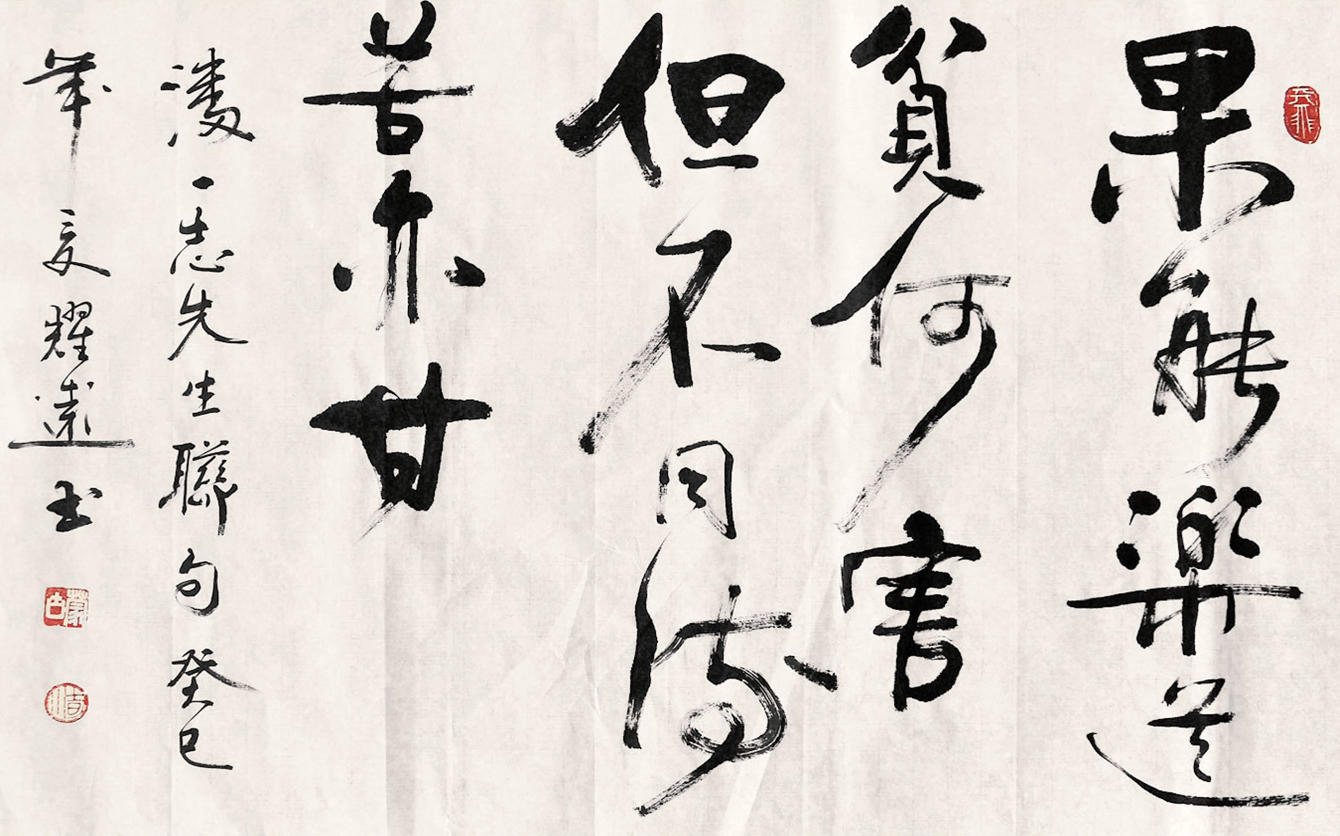 果能樂道
貧何害
但不同
苦亦甘
淩一志先生聯句癸巳
年夏耀遠书